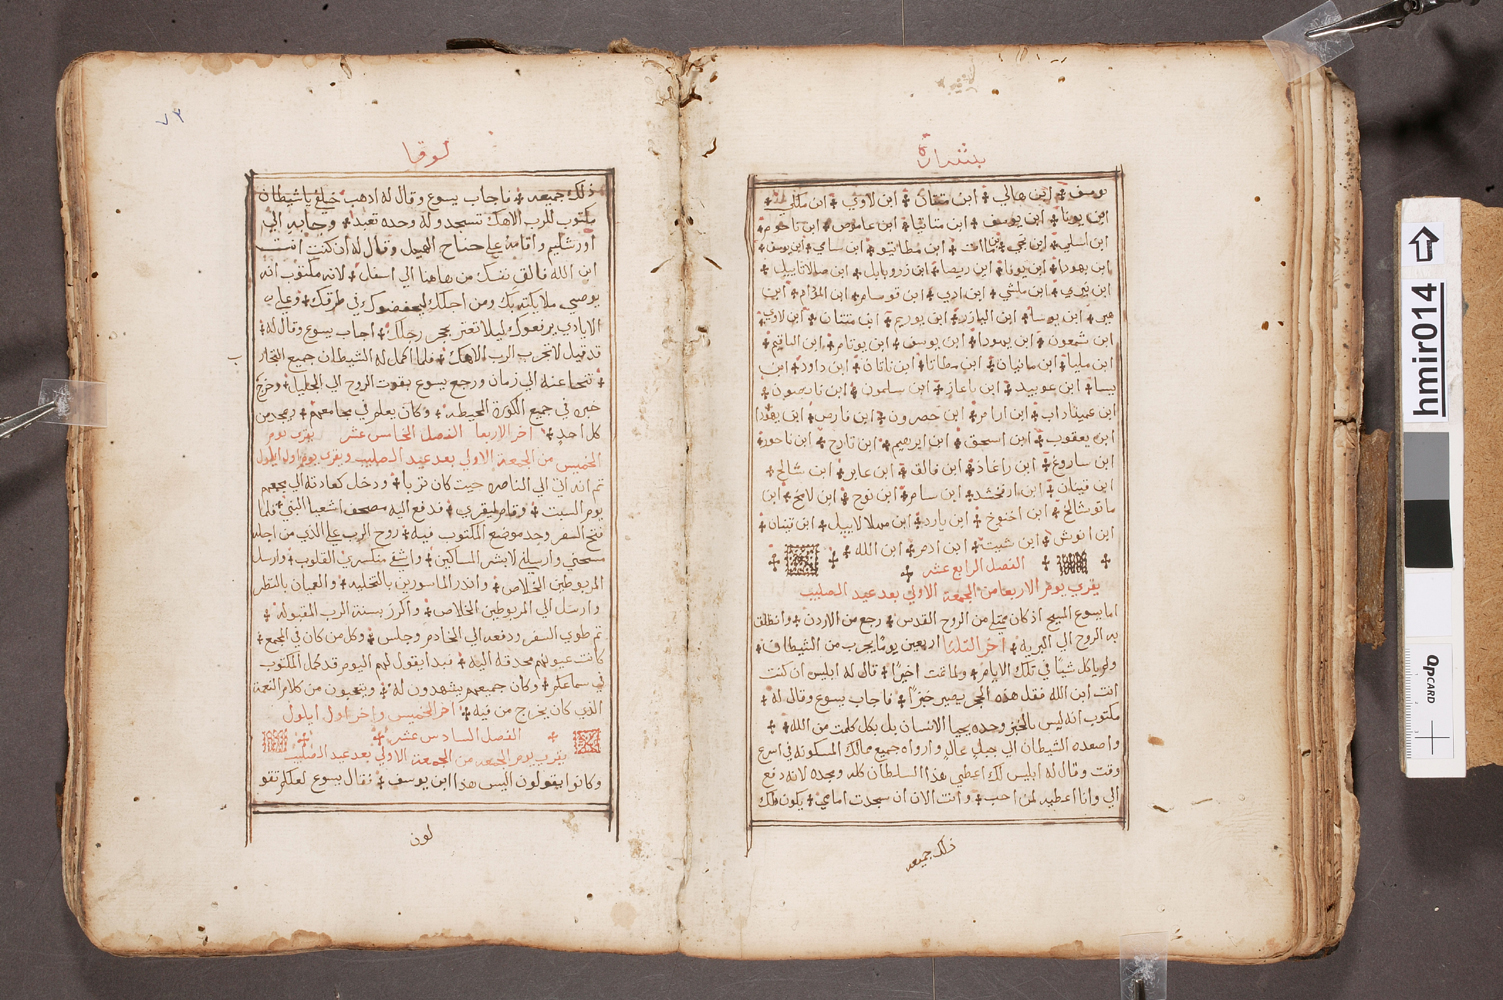 بشارة
يوسف ابن هالي ابن متثان ابن لاوي ابن ملكي
ابن يونا ابن يوسف ابن متاثيا ابن عاموص ابن ناحوم
ابن اسلي ابن نجي ابن ااف ابن مطاثيو ابن سامي ابن يوسف
ابن يهودا ابن يونا ابن ريصا ابن زروبابل ابن صالاتاييل
ابن نيري ابن ملشي ابن ادي ابن قوسام ابن المدام ابن
عير ابن يوسا ابن اليازر ابن يوريم ابن متثان ابن لاوي
ابن شمعون ابن يهودا ابن يوسف ابن يونام ابن الياقيم
ابن مليا ابن ماثيان ابن مطاثا ابن ناثان ابن داود ابن
يسا ابن عوبيد ابن باعاز ابن سلمون ابن ناصصون
ابن عميناداب ابن ارام ابن حصرون ابن فارص ابن يهودا
ابن يعقوب ابن اسحق ابن ابرهيم ابن تارح ابن ناحور
ابن ساروغ ابن راغاد ابن فالق ابن عابر ابن شالح
ابن قينان ابن ارفخشد ابن سام ابن نوح ابن لامخ ابن
ماتوشالخ ابن اخنوخ ابن يارد ابن مهلالاييل ابن قينان
ابن انوش ابن شيت ابن ادم ابن الله
الفصل الرابع عشر
يقري يوم الاربعا من الجمعة الاولي بعد عيد الصليب
اما يسوع المسيح اذ كان ممتلي من الروح القدس رجع من الاردن وانطلق
به الروح الي البريه اخر الثلثا اربعين يومًا يجرب من الشيطان
ولم ياكل شيًا في تلك الايام ولما تمت اخيرًا قال له ابليس ان كنت
انت ابن الله فقل لهذه الحجر يصير خبزًا فاجاب يسوع وقال له
مكتوب انه ليس بالخبز وحده يحيا الانسان بل بكل كلمة من الله
واصعده الشيطان الي جبلٍ عالٍ واراه جميع ممالك المسكونه في اسرع
وقت وقال له ابليس لك اعطي هذا السلطان كله ومجده لانه دفع
الي وانا اعطيه لمن احب وانت الان ان سجدت امامي يكون لك
ذلك جميعه
٧٣
لوقا
ذلك جميعه فاجاب يسوع وقال له اذهب خلفي يا شيطان
مكتوب للرب الاهك تسجد وله وحده تعبد وجابه الي
اورشليم واقامه علي جناح الهيكل وقال له ان كنت انت
ابن الله فالق نفسك من هاهنا الي اسفل لانه مكتوب انه
يوصي ملايكته بك ومن اجلك ليحفضوك في طرقك وعلي
الايادي يرفعوك ليلا تعثر بحجر رجلك اجاب يسوع وقال له
قد قيل لا تجرب الرب الاهك فلما اكمل له الشيطان جميع التجار
ب
تنحا عنه الي زمان ورجع يسوع بقوت الروح الي الجليل وخرج
خبره في جميع الكورة المحيطه وكان يعلم في مجامعهم ويمجد من
كل احدٍ اخر الاربعا الفصل الخامس عشر يقري يوم
الخميس من الجمعة الاولي بعد عيد الصليب ويقري يوم اول ايلول
ثم انه اتي الي الناصره حيث كان تربا ودخل كعادته الي مجمعهم
يوم السبت وقام ليقري فدفع اليه مصحف اشعيا النبي فلما
فتح السفر وجد موضع المكتوب فيه روح الرب علي الذي من اجله
مسحني وارسلني لابشر المساكين واشفي منكسري القلوب وارسل
المربوطين الخلاص وانذر الماسورين بالتخليه والعميان بالنظر
وارسل الي المربوطين الخلاص واكرز بسنة الرب المقبوله
ثم طوي السفر ودفعه الي الخادم وجلس وكل من كان في المجمع
كانت عيونهم محدقه اليه فبدا يقول لهم اليوم قد كمل المكتوب
في سماعكم وكان جميعهم يشهدون له ويتعجبون من كلام النعمة
الذي كان يخرج من فيه اخر الخميس واخر اول ايلول
الفصل السادس عشر
يقري يوم الجمعه من الجمعة الاولي بعد عيد الصليب
وكانوا يقولون اليس هذا ابن يوسف فقال يسوع لعلكم تقو
لون
hmir014
QPCARD